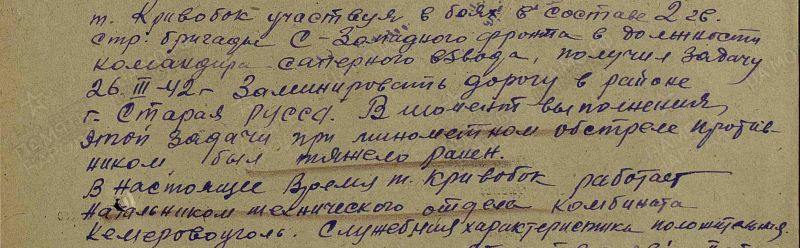 т. Кривобок участвуя в боях в составе 2 гв.
стр. бригады С-Западного фронта в должности
командира саперного взвода, получил задачу
26.III-42г Заминировать дорогу в районе
г. Старая Русса. В момент выполнения
этой задачи при минометном обстреле против-
ником, был тяжело ранен.
В настоящее время т. Кривобок работает
начальником технического отдела комбината
Кемеровоуголь. Служебная характеристика положительная.